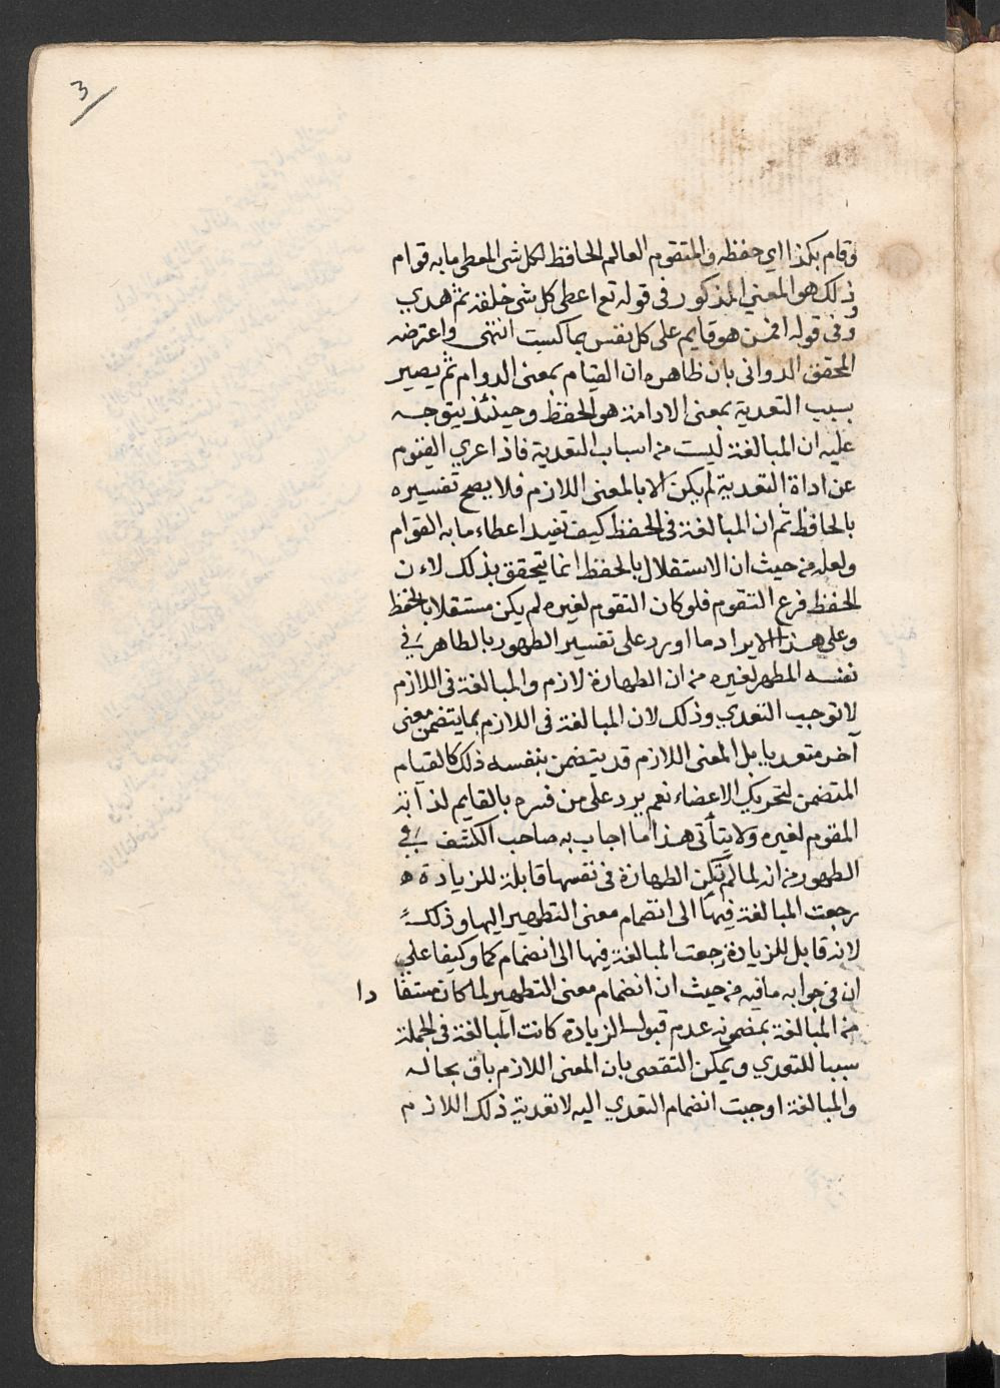 3
وقام بكذا اي حفظه والمتقوم العالم الحافظ لكل شى المعطى ما به قوام
ذلك هو المعني المذكور فى قوله تع اعطى كل شى خلقه ثم هدي
وفى قوله افمن هو قايم على كل نفس بما كسبت انتهى واعترضه
المحقق الدوانى بان ظاهره ان القيام بمعنى الدوام ثم يصير
بسبب التعدية بمعنى الادامة هو الحفظ وحينئذ يتوجه
عليه ان المبالغة ليست من اسباب التعدية فاذا عري القيوم
عن اداة التعدية لم يكن الا بالمعنى اللازم فلا يصح تفسيره
بالحافظ ثم ان المبالغة فى الحفظ كيف تفيد اعطاء ما به القوام
ولعله من حيث ان الاستقلال بالحفظ انما يتحقق بذلك لاءن
الحفظ فرع التقوم فلو كان التقوم لغيره لم يكن مستقلا بالحفظ
وعلى هذا الايراد ما اورد على تفسير الطهور بالطاهر في
نفسه المطهر لغيره من ان الطهارة لازم والمبالغة فى اللازم
لا توجب التعدي وذلك لان المبالغة فى اللازم بما يتضمن معنى
آخر متعديا بل المعنى اللازم قد يتضمن بنفسه ذلك كالقيام
المتضمن لتحريك الاعضاء نعم يرد على من فسره بالقايم لذاته
المقوم لغيره ولا يتأتى هذا ما اجاب به صاحب الكشف في
الطهور من انه لما لم تكن الطهارة فى نفسها قابلة للزيادة ه
رجعت المبالغة فيها الى انضمام معنى التطهير اليها وذلك
لانه قابل للزيادة رجعت المبالغة فيها الى انضمام كما وكيفا على
ان فى جوابه ما فيه من حيث ان انضمام معنى التطهير لما كان مستفا دا
من المبالغة بمضمونه عدم قبول الزيادة كانت المبالغة فى الجملة
سببا للتعدي ويمكن التقصى بان المعنى اللازم باق بحاله
والمبالغة اوجبت انضمام التعدي اليه لا تعدية ذلك اللازم